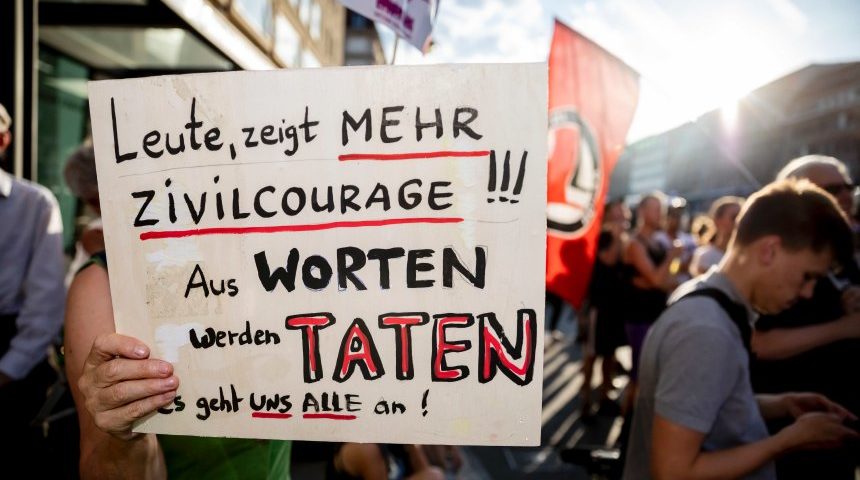 Leute, zeigt MEHR
ZIVILCOURAGE !!!
Aus WORTEN
werden TATEN
Es geht UNS ALLE an !